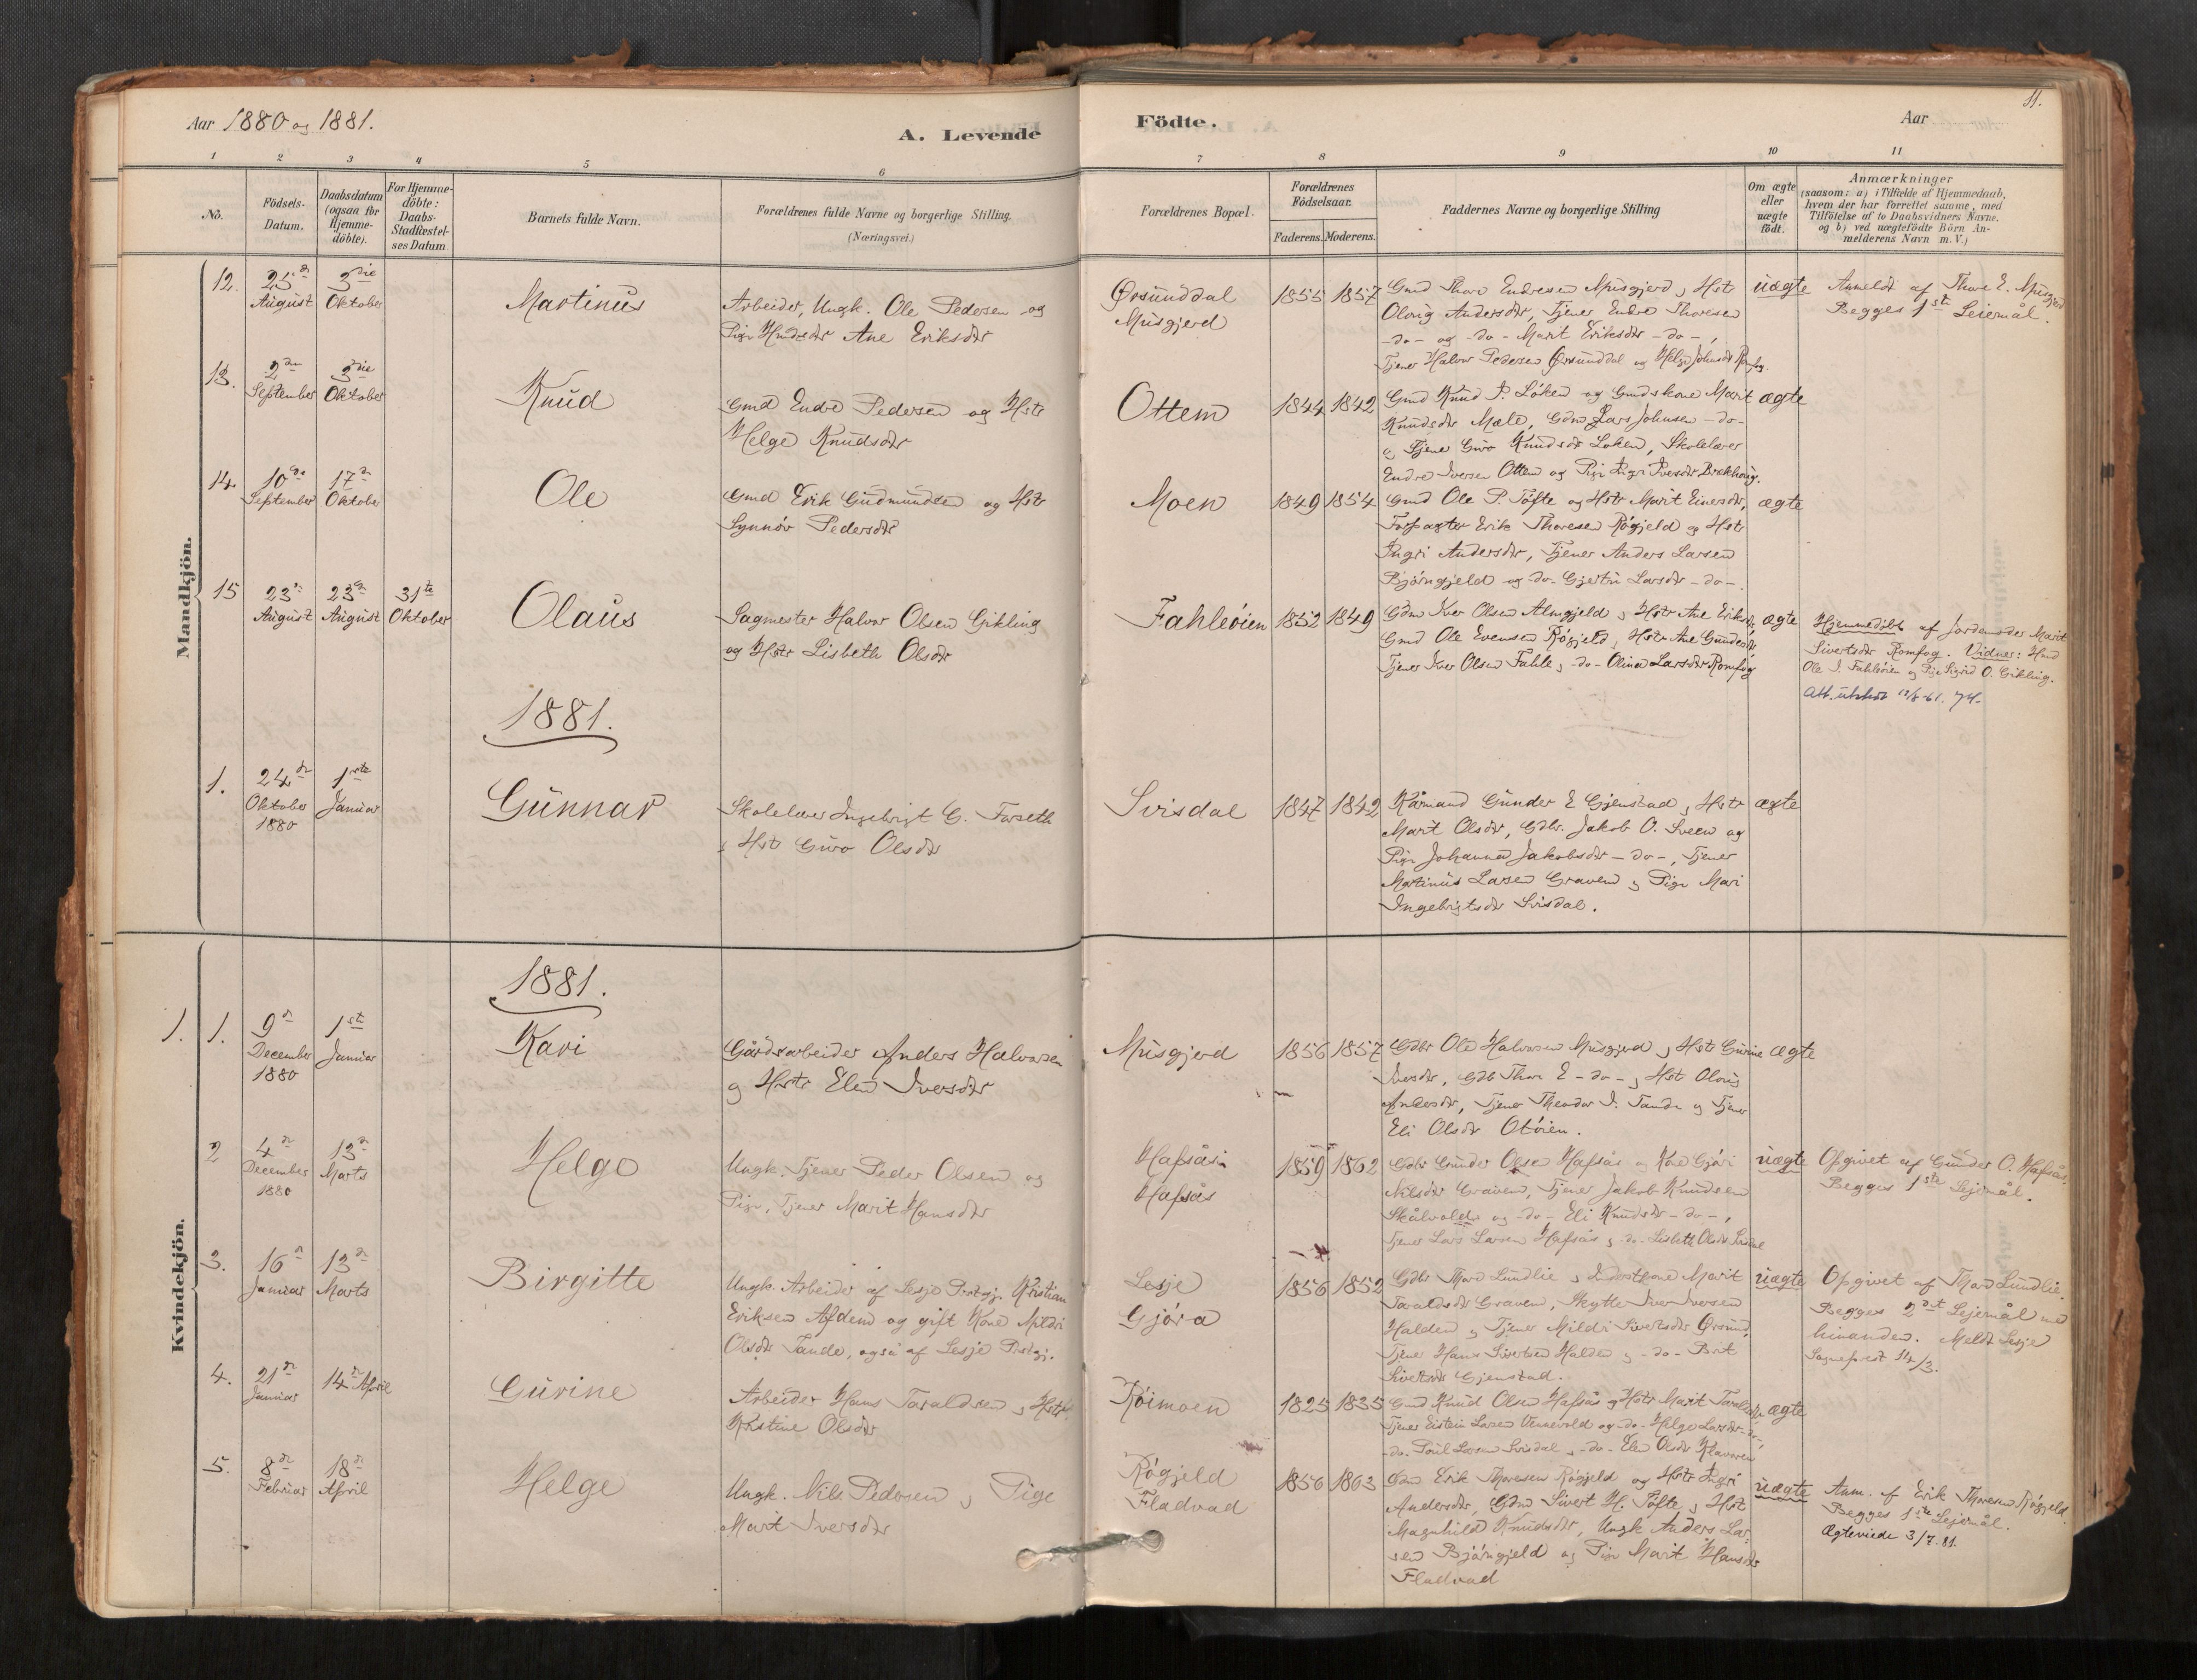 Aar 1880 og 1881.
A. Levende
Födte.
Aar
11.
1 2 3 4 5 6 7 8 9 10 11
No.
Födsels-
Datum.
Daabsdatum
(ogsaa for
Hjemme-
döbte).
For Hjemme-
döbte:
Daabs-
Stadfæstel-
ses Datum
Barnets fulde Navn.
Forældrenes fulde Navne og borgerlige Stilling.
(Næringsvei.)
Forældrenes Bopæl.
Forældrenes
Födselsaar.
Faderens. Moderens.
Faddernes Navne og borgerlige Stilling
Om ægte
eller
uægte
födt.
Anmærkninger
(saasom: a) i Tilfælde af Hjemmedaab,
hvem der har forrettet samme, med
Tilföielse af to Daabsvidners Navne.
og b) ved uægtefödte Börn An-
melderens Navn m. V.)
Mandkjön.
12. 25de August
3die Oktober
Martinus
Arbeider, Ungk. Ole Pedersen og
Pige Ane Eriksdtr
Ørsunddal
Musgjerd
1855 1857
Gmd Thore Endresen Musgjerd, Hst
Oloug Andersdtr, Tjener Endre Thoresen
-do- og -do- Marit Eriksdtr -do-,
Tjener Halvor Pedersen Ørsunddal og Helge Johnsdtr
uægte
Anmeldt af Thore E. Musgjerd
Begges 1ste Leiermål.
13. 2den September
3die Oktober
Knud
Gmd Endre Pedersen og Hstr
Helge Knudsdtr
Ottem
1844 1842
Gmd Knud P. Löken og Gmdskone Marit
Knudsdtr Mæle, Gdm Lars Johnsen -do-
og Tjene Guro Knudsdtr Loken, Skolelærer
Endre Iversen Ottem og Pige Ingri Iversdtr Brekhoug.
ægte
14. 10de September
17de Oktober
Ole
Gmd Erik Gudmundsen og Hstr
Synnöv Pedersdtr
Moen
1849 1854
Gmd Ole P. Töfte og Hstr Marit Einersdtr,
Forpagter Erik Thoresen Rögjeld og Hstr
Ingri Andersdtr, Tjener Anders Larsen
Bjørngjeld og -do- Gjertru Larsdtr -do-.
ægte
15 23de August
23de August
31te Oktober
Olaus
Sagmester Halvor Olsen Gikling
og Hstr Lisbeth Olsdtr
Fahleöien
1852 1849
Gdm Iver Olsen Almgjeld, Hstr Ane Eriksdtr,
Gmd Ole Evensen Rögjeld, Hstr Ane Gundersdtr
Tjener Iver Olsen Fahle, -do- Olina Larsdtr Romfög
ægte
Hjemmedøbt af Jordemoder Marit
Sivertsdtr Romfog. Vidner:
Ole I. Fahleöien og Pige Sigrid O. Gikling.
1881.
1. 24de Oktober 1880
1ste Januar
Gunnar
Skolelærer Ingebrigt G. Forseth
, Hstr Guro Olsdtr
Svisdal
1847 1842
Kårmand Gunder E Gjenstad, Hstr
Marit Olsdtr, Gdbr. Jakob O. Sveen og
Pige Johanna Jakobsdtr -do-, Tjener
Martinus Larsen Graven, Pige Mari
Ingebrigtsdtr Svisdal.
ægte
1881.
Kvindekjön.
1. 1. 9de December 1880
1ste Januar
Kari
Gårdsarbeider Anders Halvorsen
og Hstr Elen Iversdtr
Musgjerd
1856 1857
Gdbr Ole Halvorsen Musgjerd, Hst Gurine
Iversdtr, Gdb Thore E -do-, Hst Oloug
Andersdtr, Tjener Theodor I. Tande og Tjener
Eli Olsdtr Otöien.
ægte
2 4de December 1880
13de Marts
Helge
Ungk. Tjener Peder Olsen og
Pige, Tjener Marit Hansdtr
Hafsås
Hafsås
1859 1862
Gdbr Gunder Olsen Hafsås og Kone Gjöri
Nilsdtr Graven, Tjener Jakob Knudsen
Skålvold og -do- Eli Knudsdtr -do-,
Tjener Lars Larsen Hafsås, -do- Lisbeth Olsdtr Svisdal
uægte
Opgivet af Gunder O. Hafsås.
Begges 1ste Lejermål.
3. 16de Januar
13de Marts
Birgitte
Ungk. Arbeider af Lesje Prstgj. Kristian
Eriksen Afdem og gift Kone Mildri
Olsdtr Tande, også af Lesje Prstgj.
Lesje
Gjøra
1856 1852
Gdbr Thore Lundlie, Marit
Taraldsdtr Graven, Skytte Iver Iversen
Halden, Tjener Mildri Sivertsdtr Ørsund,
Tjener Hans Sivertsen Halden, -do- Brit
Sivertsdtr Gjenstad.
uægte
Opgivet af Thore Lundlie.
Begges 2det Lejermål med
hinanden. Meldt Lesje
Sogneprest 14/3.
4. 21de Januar
14de April
Gurine
Arbeider Hans Taraldsen, Hstr
Kristine Olsdtr
Röimoen
1825 1835
Gmd Knud Olsen Hafsås, Hstr Marit Taraldsdtr
Tjener Eistein Larsen Vennevold og -do- Helge Larsdtr -do-,
-do- Poul Larsen Svisdal, -do- Elen Olsdtr
ægte
5. 8de Februar
18de April
Helge
Ungk. Nils Pedersen, Pige
Marit Iversdtr
Rögjeld
Fladvad
1856 1863
Gdm Erik Thoresen Rögjeld og Hstr Ingri
Andersdtr, Gdm Sivert H. Töfte, Hst
Magnhild Knudsdtr, Ungk Anders Lar-
sen Bjørngjeld og Pige Marit Hansdtr
Fladvad
uægte
Anm. af Erik Thoresen Rögjeld.
Begges 1ste Lejermål.
Ægteviede 3/7. 81.